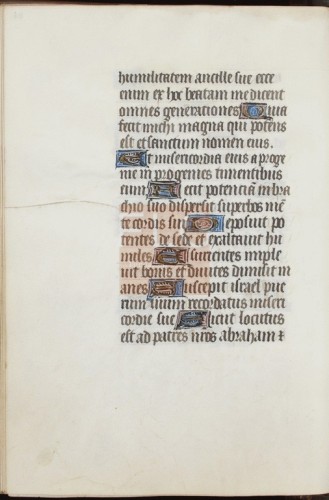 humilitatem ancille sue ecce
enim ex hoc beatam me dicent
omnes generationes Quia
fecit michi magna qui potens
est et sanctum nomen eius.
Et misericordia eius a proge
nie in progenies timentibus
eum Fecit potenciā in bra
chio suo dispersit superbos mē
te cordis sui Deposuit po
tentes de sede et exaltauit hu
miles Esurientes imple
uit bonis et diuites dimisit in
anes Suscepit israel pue
rum suum recordatus miseri
cordie sue Sicut locutus
est ad patres nr̄os abraham ⁊